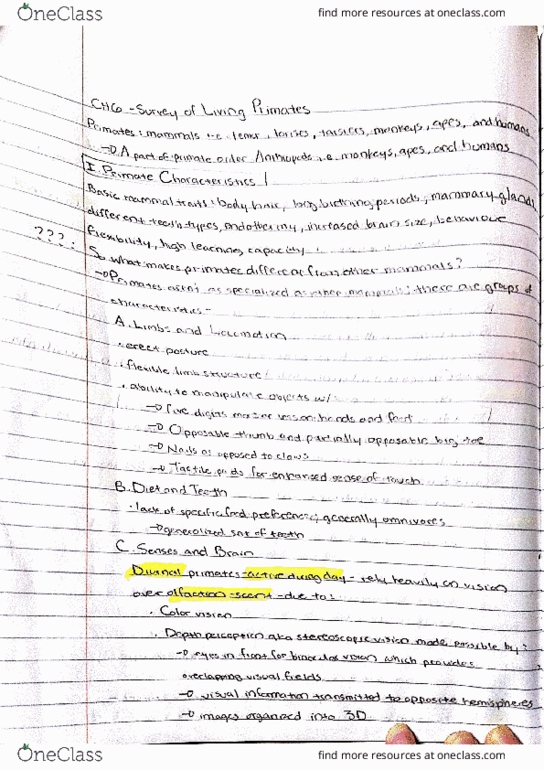 OneClass
find more resources at oneclass.com
CH6 - Survey of Living Primates
Primates: mammals i.e. lemur, lorises, tarsiers, monkeys, apes, and humans
→ A part of primate order Anthropoids i.e. monkeys, apes, and humans
I. Primate Characteristics
Basic mammal traits: body hair, long birthing periods, mammary glands,
different teeth types, endothermy, increased brain size, behaviour
flexibility, high learning capacity
???: So what makes primates different from other mammals?
→ Primates aren't as specialized as other mammals; there are groups of
characteristics-
A. Limbs and Locomotion
• erect posture
• flexible limb structure
• ability to manipulate objects w/
→ Five digits on hands and feet
→ Opposable thumb and partially opposable big toe
→ Nails as opposed to claws
→ Tactile pads for enhanced sense of touch
B. Diet and Teeth
• lack of specific food preference; generally omnivores
→ generalized set of teeth
C. Senses and Brain
Diurnal primates - active during day - rely heavily on vision
over olfaction - scent - due to:
• Color vision
• Depth perception aka stereoscopic vision made possible by:
→ eyes in front for binocular vision which provides
overlapping visual fields
→ visual information transmitted to opposite hemispheres
→ images organized into 3D
OneClass
find more resources at oneclass.com